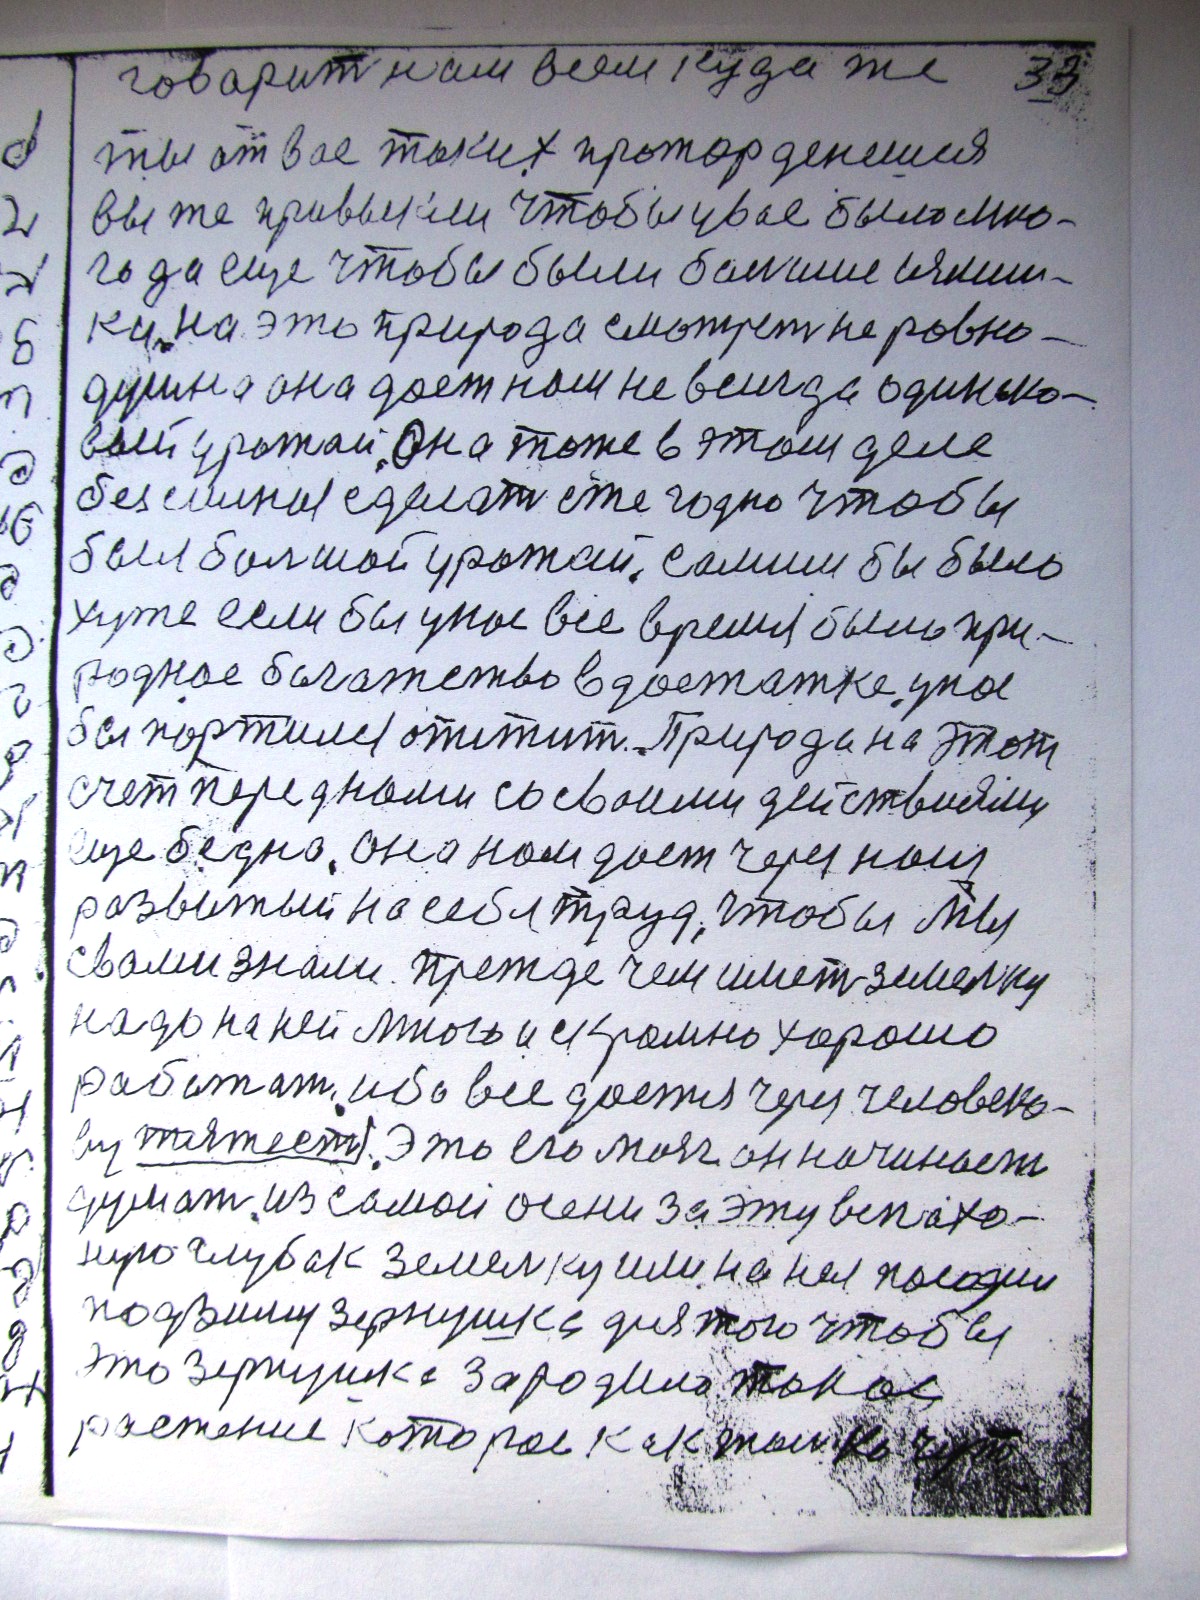 говарит нам всем куда же 33
ты от вас таких прамар денешся
вы же привыкли чтобы у вас было мно-
го да еще чтобы были больише
ки. на это природа смотрит не ровно-
душна она дает нам не всигда одинько-
вый урожай. Она тоже в этом деле
без силна сделат еже годно чтобы
был большой урожай. самим бы было
хуже если бы у нас все время было при-
родное багатство в достатке. у нас
бы портился апетит. Природа на этот
счет перед нами со своими действиями
еще бедна. Она нам дает через наш
развитый на себя труд, чтобы мы
свами знали прежде чем имет земельку
надо на ней много и скромно хорошо
работат. ибо все дается через человеко-
ву тяжест. Это его мозг он начинает
думат из самой осени за эту вспаха-
ную глубак земельку или на ней посадил
подзиму зернушка для того чтобы
это зернушка зародила такое
растение каторое как только чут